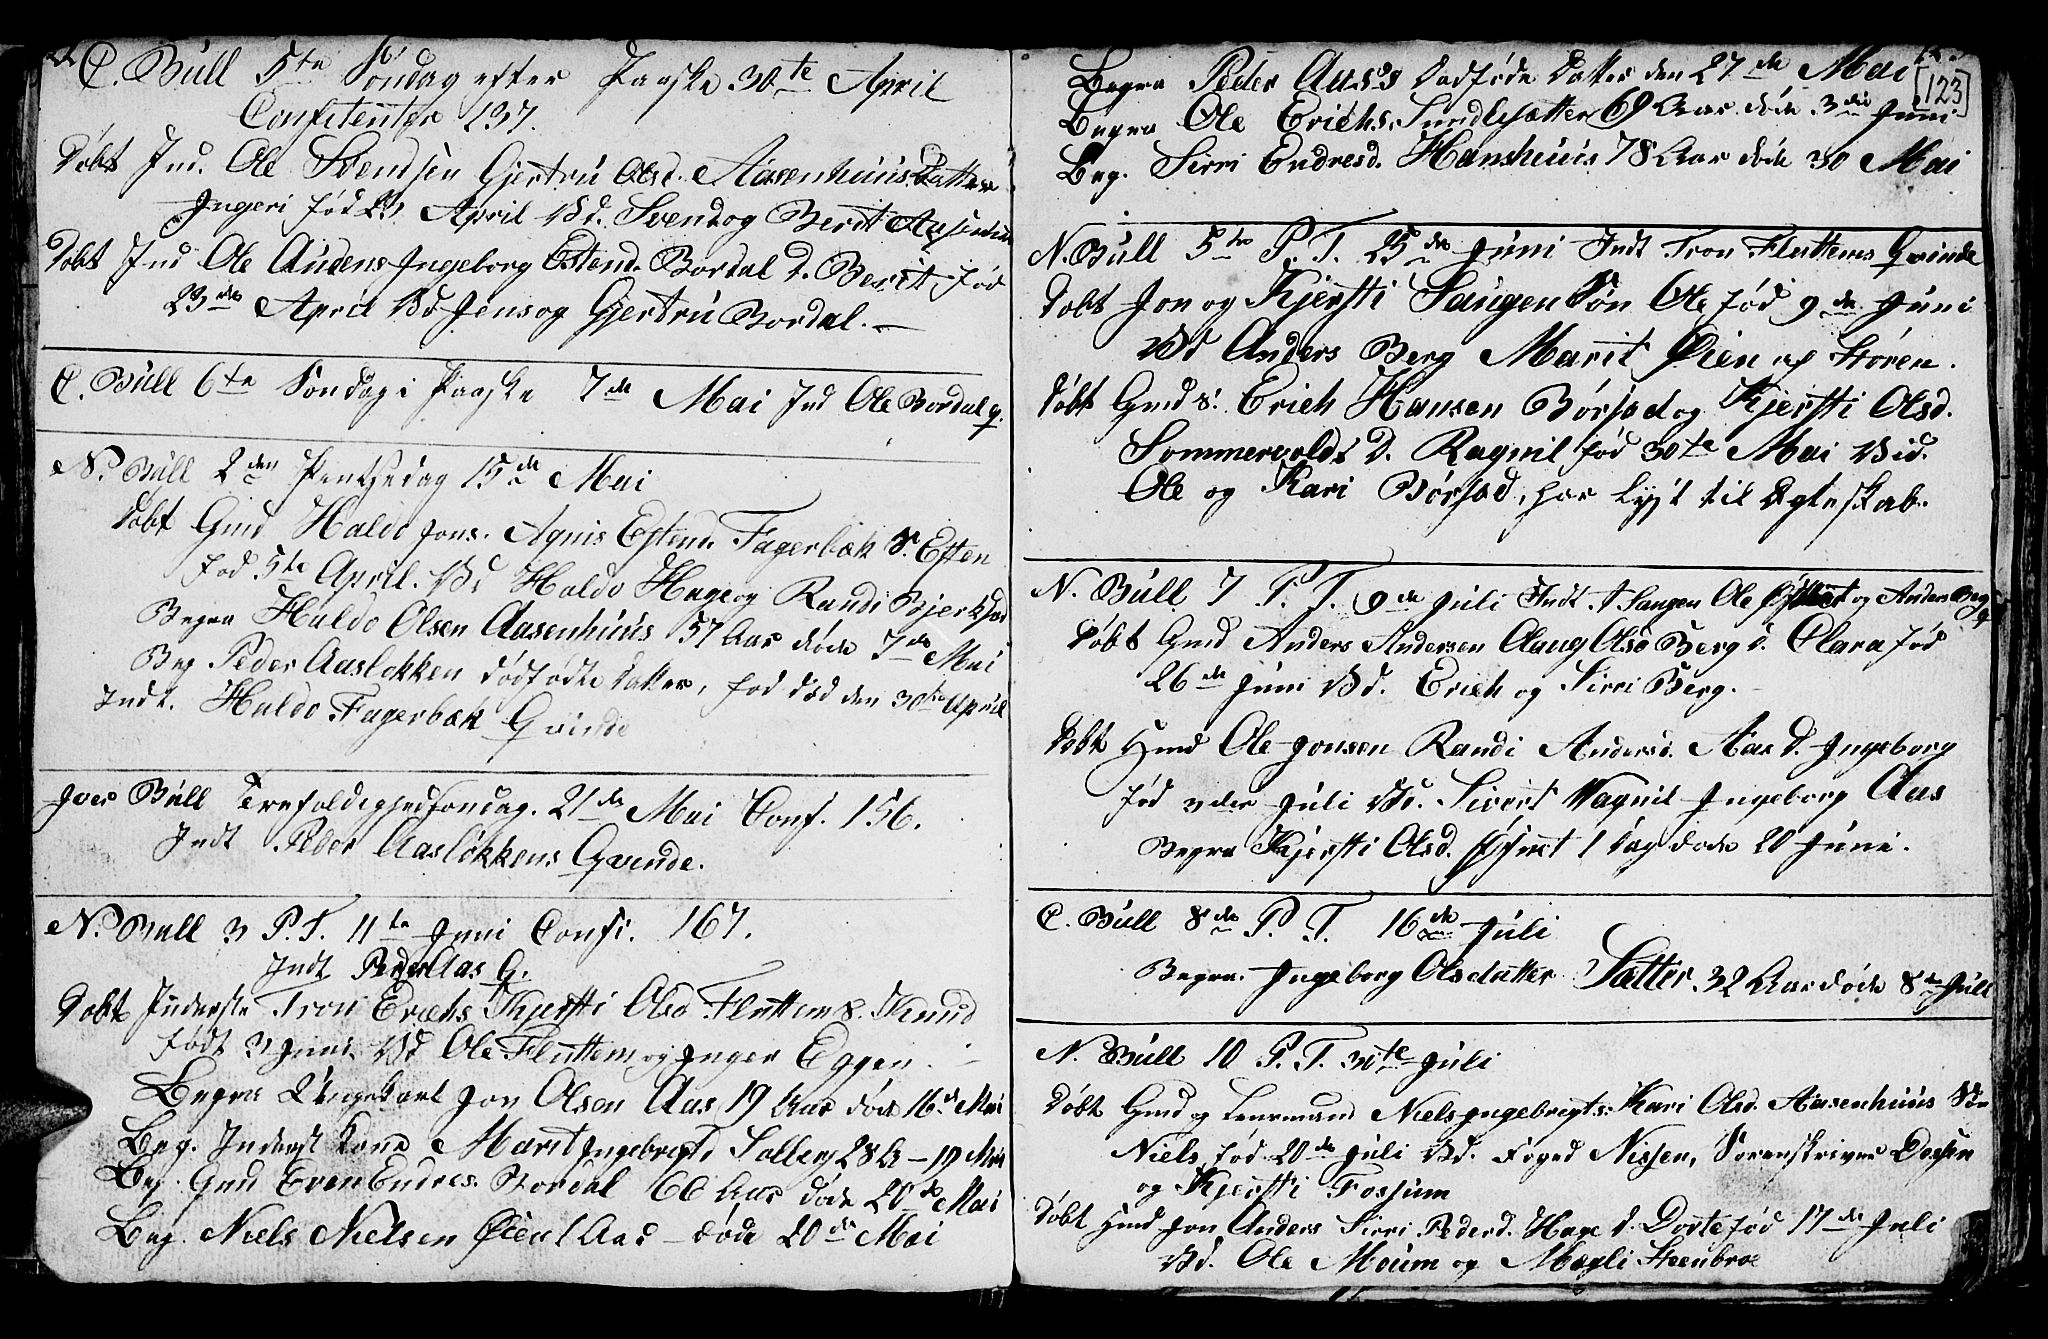 C. Bull 5te Söndag efter Paaske 30te April
Confitenter 137.
Döbt Ind. Ole Svendsen Gjertru Olsd. Aasenhuus Datter
Ingeri född 23 April Vd. Svend og Berit Aasenhuus
Döbt Ind Ole Audens Ingeborg Estend. Bordal D. Berit föd
23de April Vd Jens og Gjertru Bordal.
C. Bull 6te Söndag i Paaske 7de Mai Ind Ole Bordal q.
N. Bull 2den Pentsedag 15de Mai
Döbt Gmd Haldo Jons. Agnis Estend. Fagerbæk S. Esten
föd 5te April. Vd Haldo Hage og Randi Bjerkset
Begra Haldo Olsen Aasenhuus 57 Aar döde 7de Mai
Beg Peder Aaslökken dödfödte datter, föd död den 30te April
Indt. Haldo Fagerbæk Qvinde
Iver Bull Trefoldighedsöndag. 21de Mai Conf. 156.
Indt Peder Aaslökkens Qvinde.
N. Bull 3 P. T. 11te Juni Confi. 167.
Indt Peder Aas Q.
Döbt Inderste Tron Erichs Kjersti Olsd Fluttem S. Knud
födt 3 Juni Vd Ole Fluttem og Inger Eggen.
Begra Ungekarl Jon Olsen Aas 19 Aar döde 16de Mai
Beg. Inderst Kone Marit Ingebregtd Solberg 28 A - 19 Mai
Beg. Gmd Even Endres. Bordal 66 Aar döde 20de Mai
Beg. Niels Nielsen Øien 1 Aar - döde 20de Mai
123
Begra Peder Aas's dödföde datter den 27de Mai
Begra Ole Erichs. Sundlisætter 69 Aar döde 3die Juni
Beg. Sirri Endresd. Hanshuus 78 Aar döde 30 Mai
N. Bull 5te P. T. 25de Juni Indt Tron Fluttems Qvinde
Döbt Jon og Kjersti Saugen Sön Ole föd 9de Juni
Vd Anders Berg Marit Øien af Stören.
Döbt Gmd S. Erich Hansen Börsæd og Kjersti Olsd.
Sommervolds D. Ragnil föd 30te Mai Vid.
Ole og Kari Börsæd, har Lyst til Ægteskab.
N. Bull 7 P. T. 9de Juli Indt. Saugen Ole og Anders Berg
Döbt Gmd Anders Andersen Olaug Olsd Berg d. Clara föd
26de Juni Vd. Erich og Sirri Berg.
Döbt Hmd Ole Jonsen Randi Andersd. Aas D. Ingeborg
föd 3die Juli Vd. Sivert Vagnil Ingeborg Aas
Begra Kjersti Olsd. 1 Dag döde 20 Juni.
C. Bull 8de P. T. 16de Juli
Begra. Ingeborg Olsdatter Sætter. 32 Aar döde 8de Juli
N. Bull 10 P. T. 30te Juli
Döbt Gmd og Lensmand Niels Ingebregts: Kari Olsd. Aasenhuus Sön
Niels, föd 20de Juli Vd. Foged Nissen, Sorenskriver Dossen
og Kjersti Fossum
Döbt Hmd Jon Anders Sirri Pederd. Hage d. Dorte föd 17de Juli
Vd. Ole Moum og Magli Steenbroe